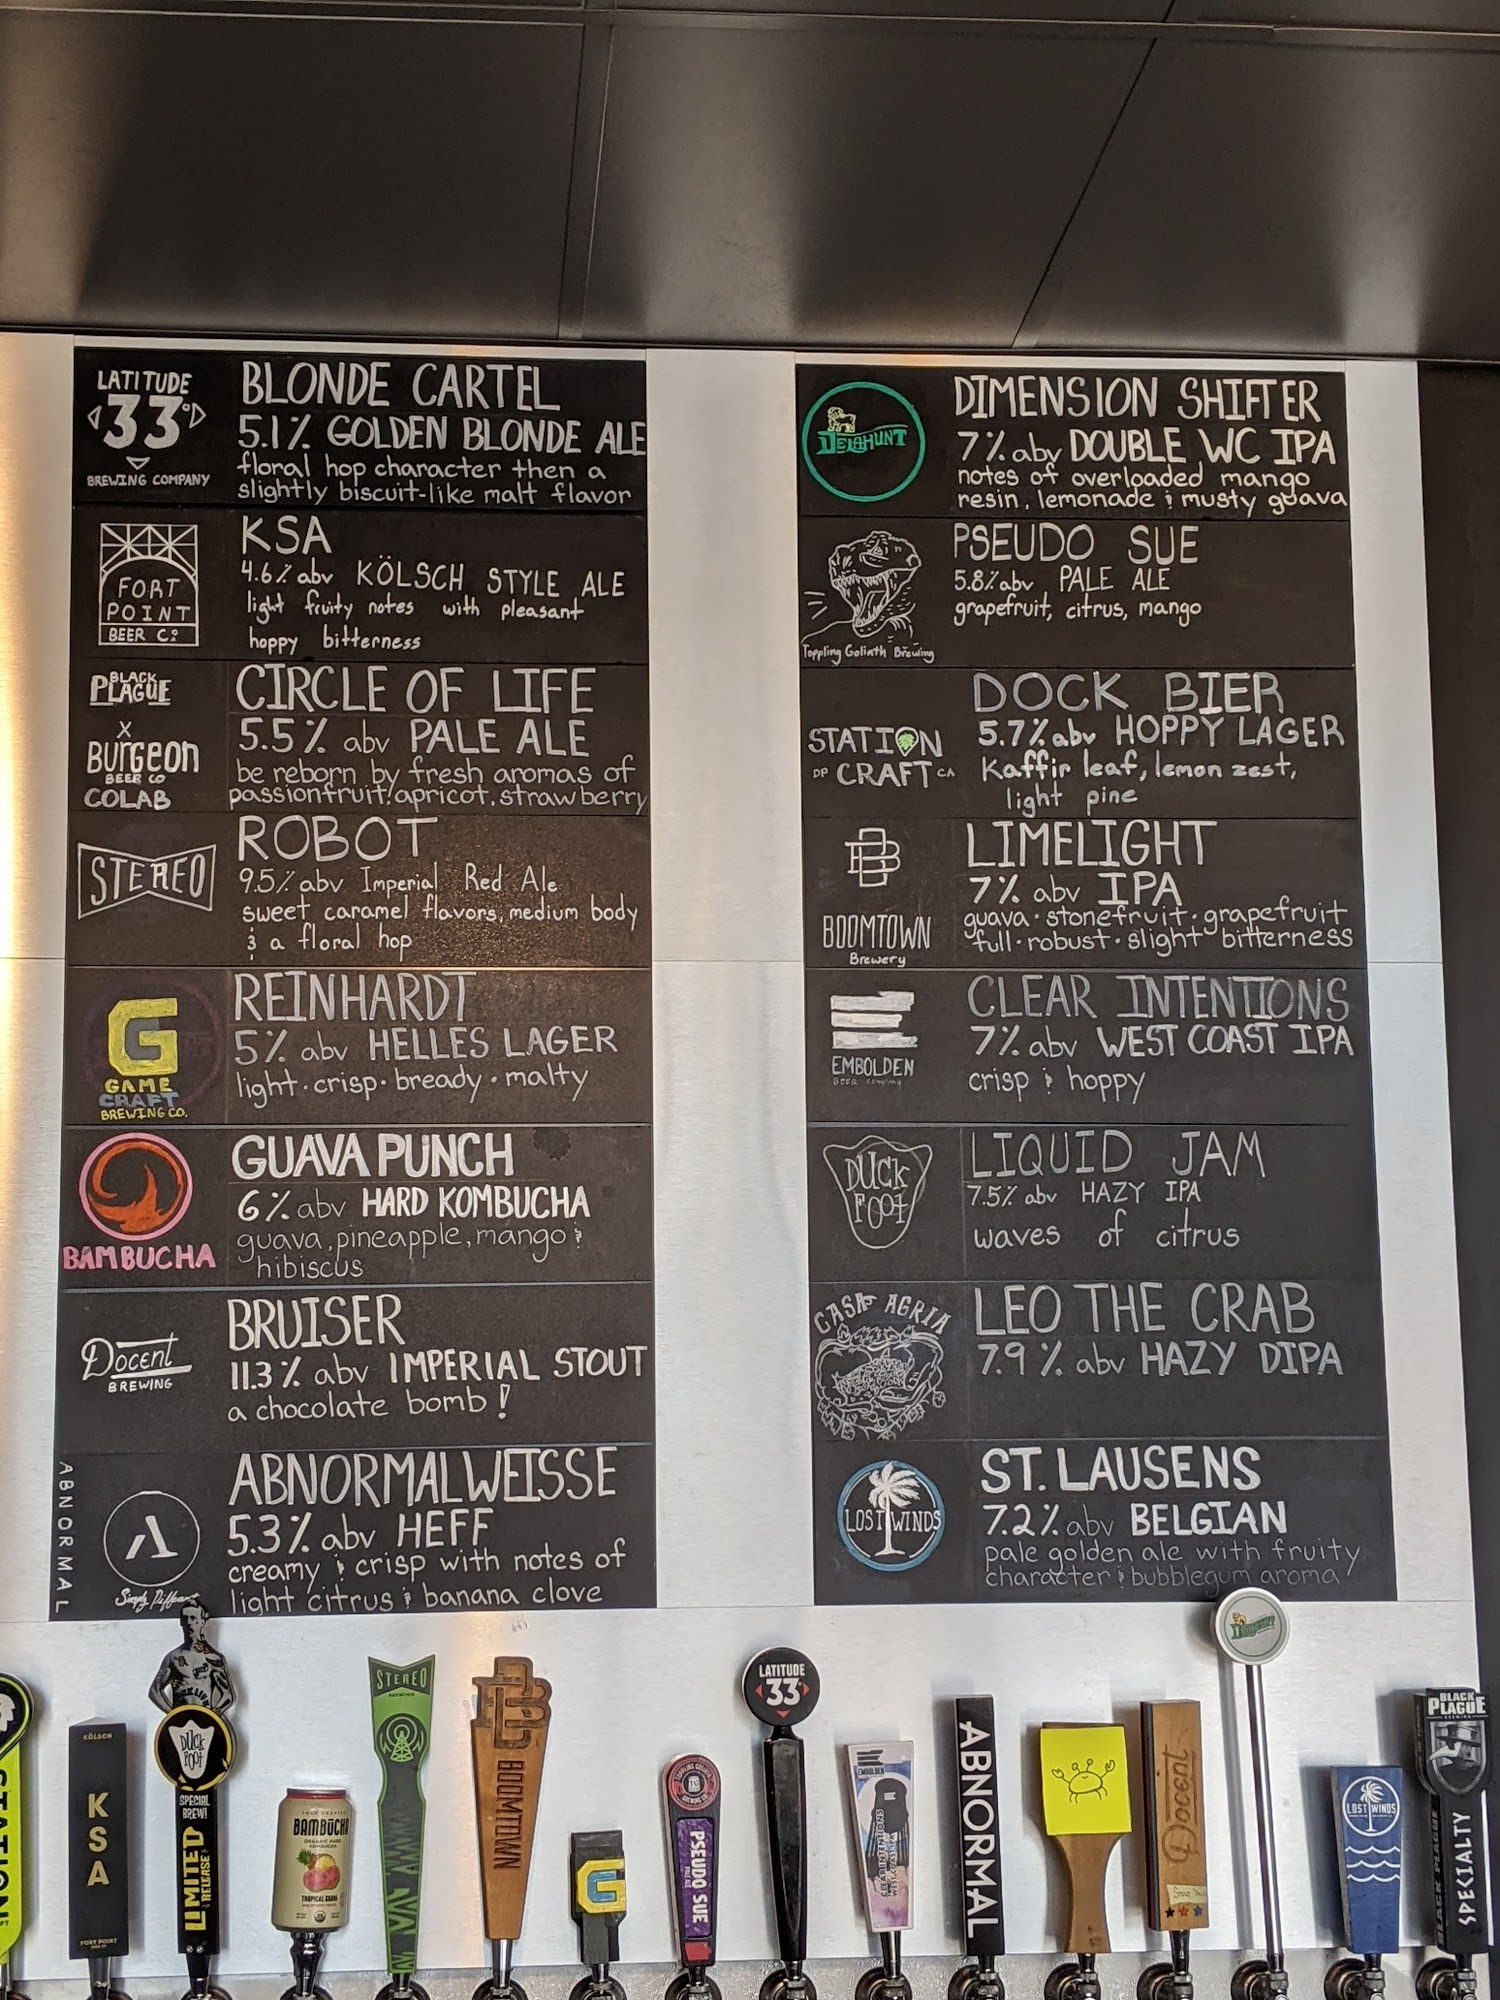 LATITUDE
33°
BREWING COMPANY
BLONDE CARTEL
5.1% GOLDEN BLONDE ALE
floral hop character then a
slightly biscuit-like malt flavor
FORT
POINT
BEER CO
KSA
4.6% abv KÖLSCH STYLE ALE
light fruity notes with pleasant
hoppy bitterness
BLACK
PLAGUE
X
BURGEON
BEER CO
COLAB
CIRCLE OF LIFE
5.5% abv PALE ALE
be reborn by fresh aromas of
passionfruit, apricot, strawberry
STEREO
ROBOT
9.5% abv Imperial Red Ale
sweet caramel flavors, medium body
& a floral hop
G
GAME
CRAFT
BREWING CO.
REINHARDT
5% abv HELLES LAGER
light · crisp · bready · malty
BAMBUCHA
GUAVA PUNCH
6% abv HARD KOMBUCHA
guava, pineapple, mango &
hibiscus
Docent
BREWING
BRUISER
11.3% abv IMPERIAL STOUT
a chocolate bomb!
ABNORMAL
ABNORMALWEISSE
5.3% abv HEFF
creamy & crisp with notes of
light citrus & banana clove
DELAHUNT
DIMENSION SHIFTER
7% abv DOUBLE WC IPA
notes of overloaded mango
resin, lemonade & musty guava
Toppling Goliath Brewing
PSEUDO SUE
5.8% abv PALE ALE
grapefruit, citrus, mango
STATION
DP CRAFT CA
DOCK BIER
5.7% abv HOPPY LAGER
Kaffir leaf, lemon zest,
light pine
BOOMTOWN
Brewery
LIMELIGHT
7% abv IPA
guava · stonefruit · grapefruit
full · robust · slight bitterness
EMBOLDEN
BEER COMPANY
CLEAR INTENTIONS
7% abv WEST COAST IPA
crisp & hoppy
DUCK
FOOT
LIQUID JAM
7.5% abv HAZY IPA
waves of citrus
CASA AGRIA
LEO THE CRAB
7.9% abv HAZY DIPA
LOST WINDS
ST. LAUSENS
7.2% abv BELGIAN
pale golden ale with fruity
character & bubblegum aroma
STATION
KÖLSCH
KSA
FORT POINT
DUCK
FOOT
SPECIAL
BREW!
LIMITED
RELEASE
BAMBUCHA
ORGANIC HARD
KOMBUCHA
TROPICAL GUAVA
STEREO
BREWING
BOOMTOWN
G
PSEUDO SUE
PALE ALE
LATITUDE
33°
EMBOLDEN
CLEAR INTENTIONS
WEST COAST IPA
ABNORMAL
Docent
DELAHUNT
LOST WINDS
BLACK
PLAGUE
BREWING
BLACK PLAGUE
SPECIALTY